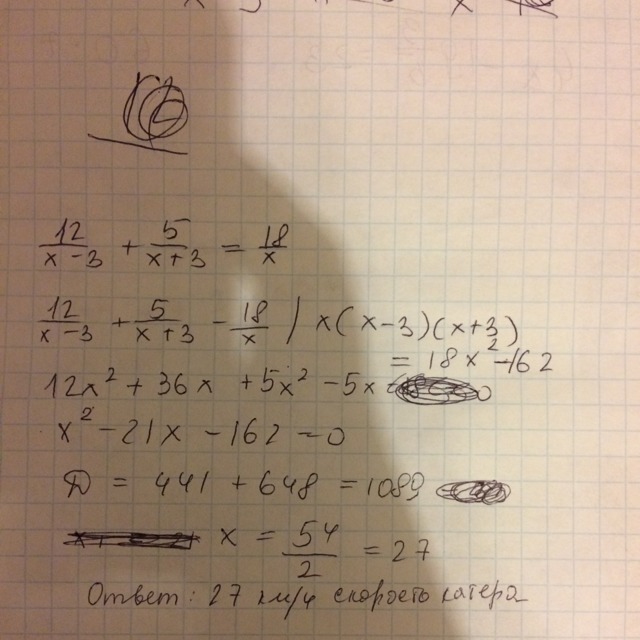 12/(x-3) + 5/(x+3) = 18/x
12/(x-3) + 5/(x+3) - 18/x / x(x-3)(x+3)
= 18x² - 162
12x² + 36x + 5x² - 5x
x² - 21x - 162 = 0
D = 441 + 648 = 1089
x = 54/2 = 27
Ответ: 27 км/ч скорость катера